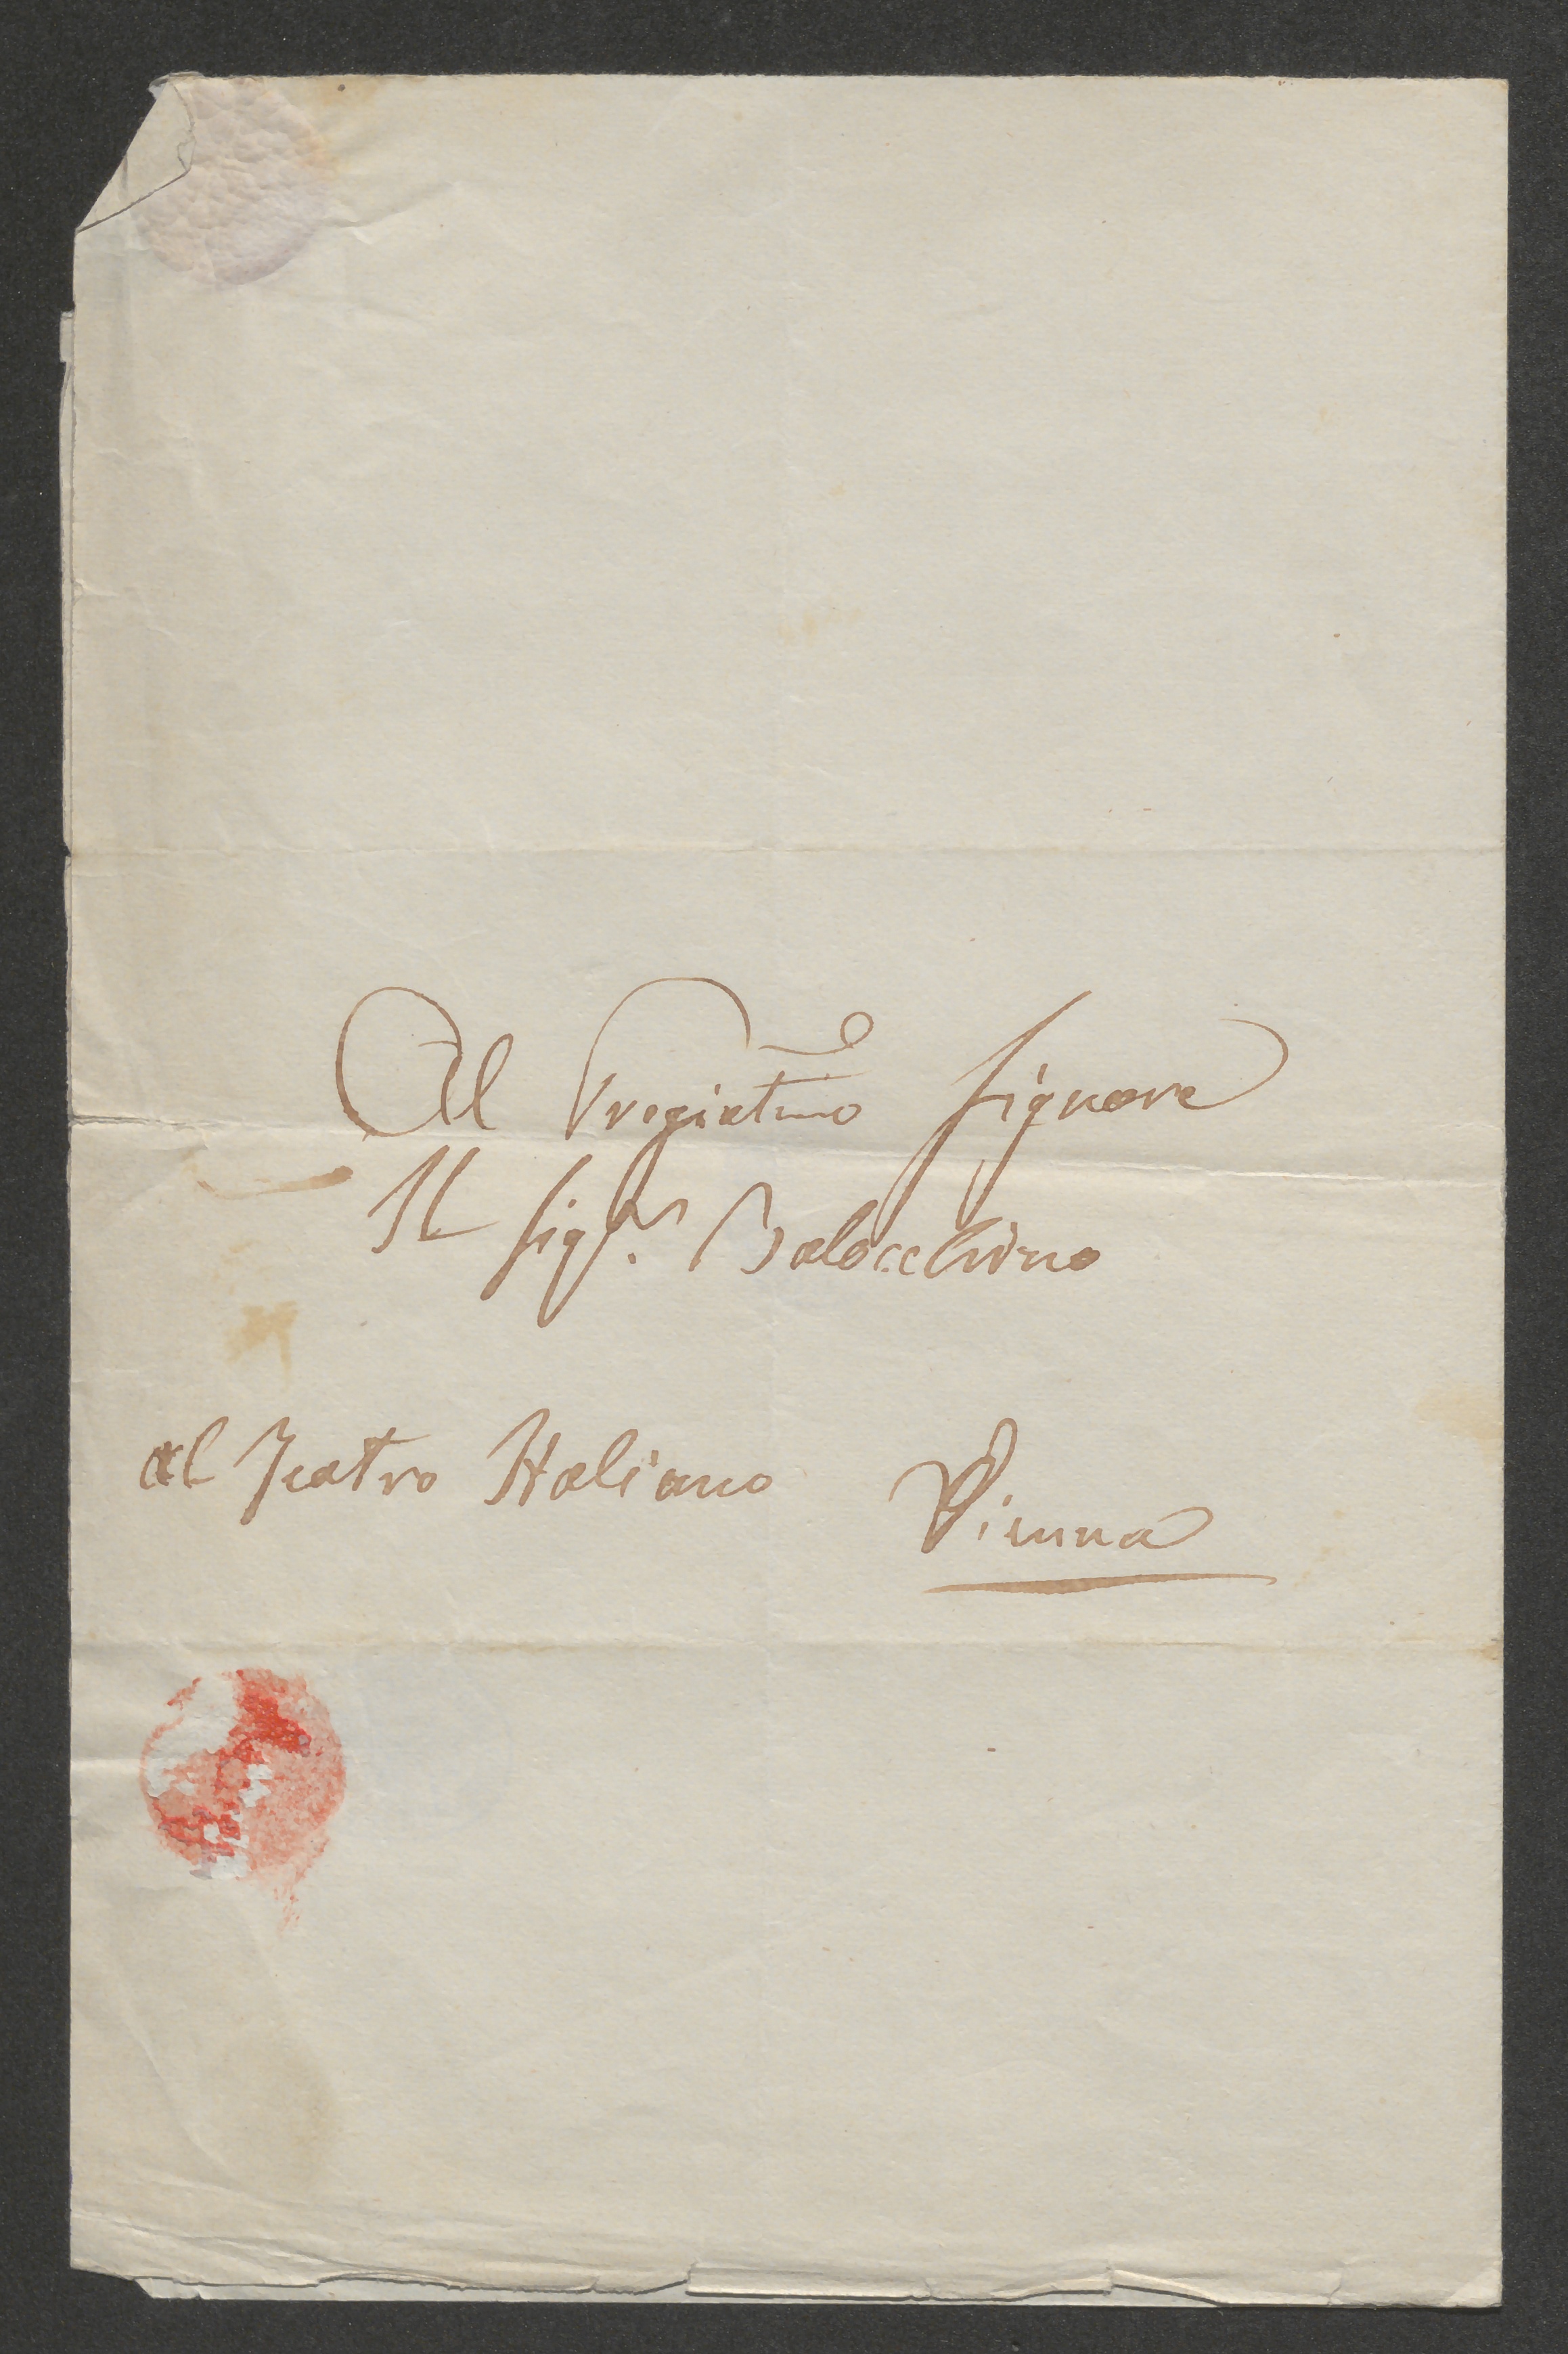 Al Pregiatmo Signore
Il Sigr. Balocchino
al Teatro Italiano
Vienna